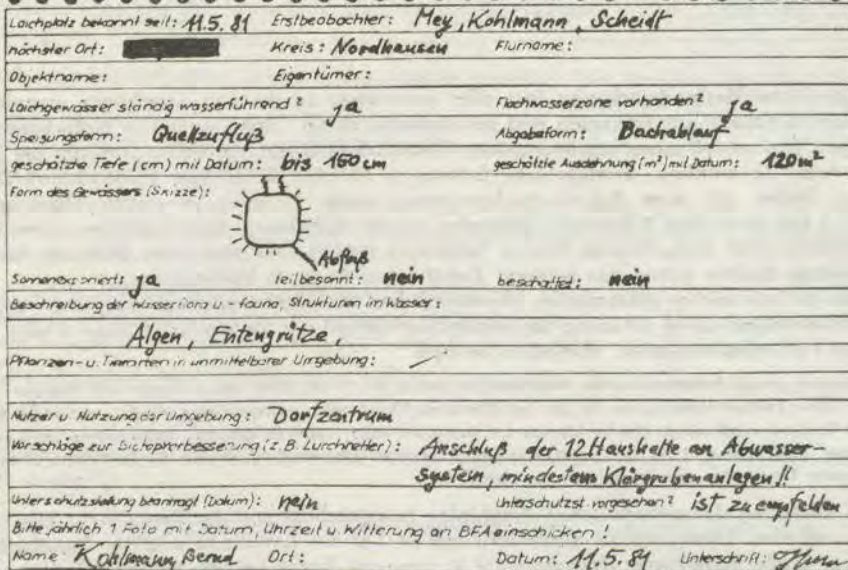 Laichplatz bekannt seit: 11.5.81 Erstbeobachter: Mey, Kohlmann, Scheidt
nächster Ort: Kreis: Nordhausen Flurname:
Objektname: Eigentümer:
Laichgewässer ständig wasserführend? ja Flachwasserzone vorhanden? ja
Speisungsform: Quellzufluß Abgabeform: Bachablauf
geschätzte Tiefe (cm) mit Datum: bis 150 cm geschätzte Ausdehnung (m²) mit Datum: 120 m²
Form des Gewässers (Skizze):
Abfluß
Sonnenexponiert: ja teilbesonnt: nein beschattet: nein
Beschreibung der Wasserflora u. -fauna, Strukturen im Wasser:
Algen, Entengrütze,
Pflanzen- u. Tierarten in unmittelbarer Umgebung:
Nutzer u. Nutzung der Umgebung: Dorfzentrum
Vorschläge zur Biotopverbesserung (z.B. Lurchretter): Anschluß der 12 Haushalte an Abwasser-
system, mindestens Klärgrubenanlagen!!
Unterschutzstellung beantragt (Datum): nein Unterschutzst. vorgesehen? ist zu empfelden
Bitte jährlich 1 Foto mit Datum, Uhrzeit u. Witterung an BFA einschicken!
Name: Kohlmann, Bernd Ort: Datum: 11.5.81 Unterschrift: